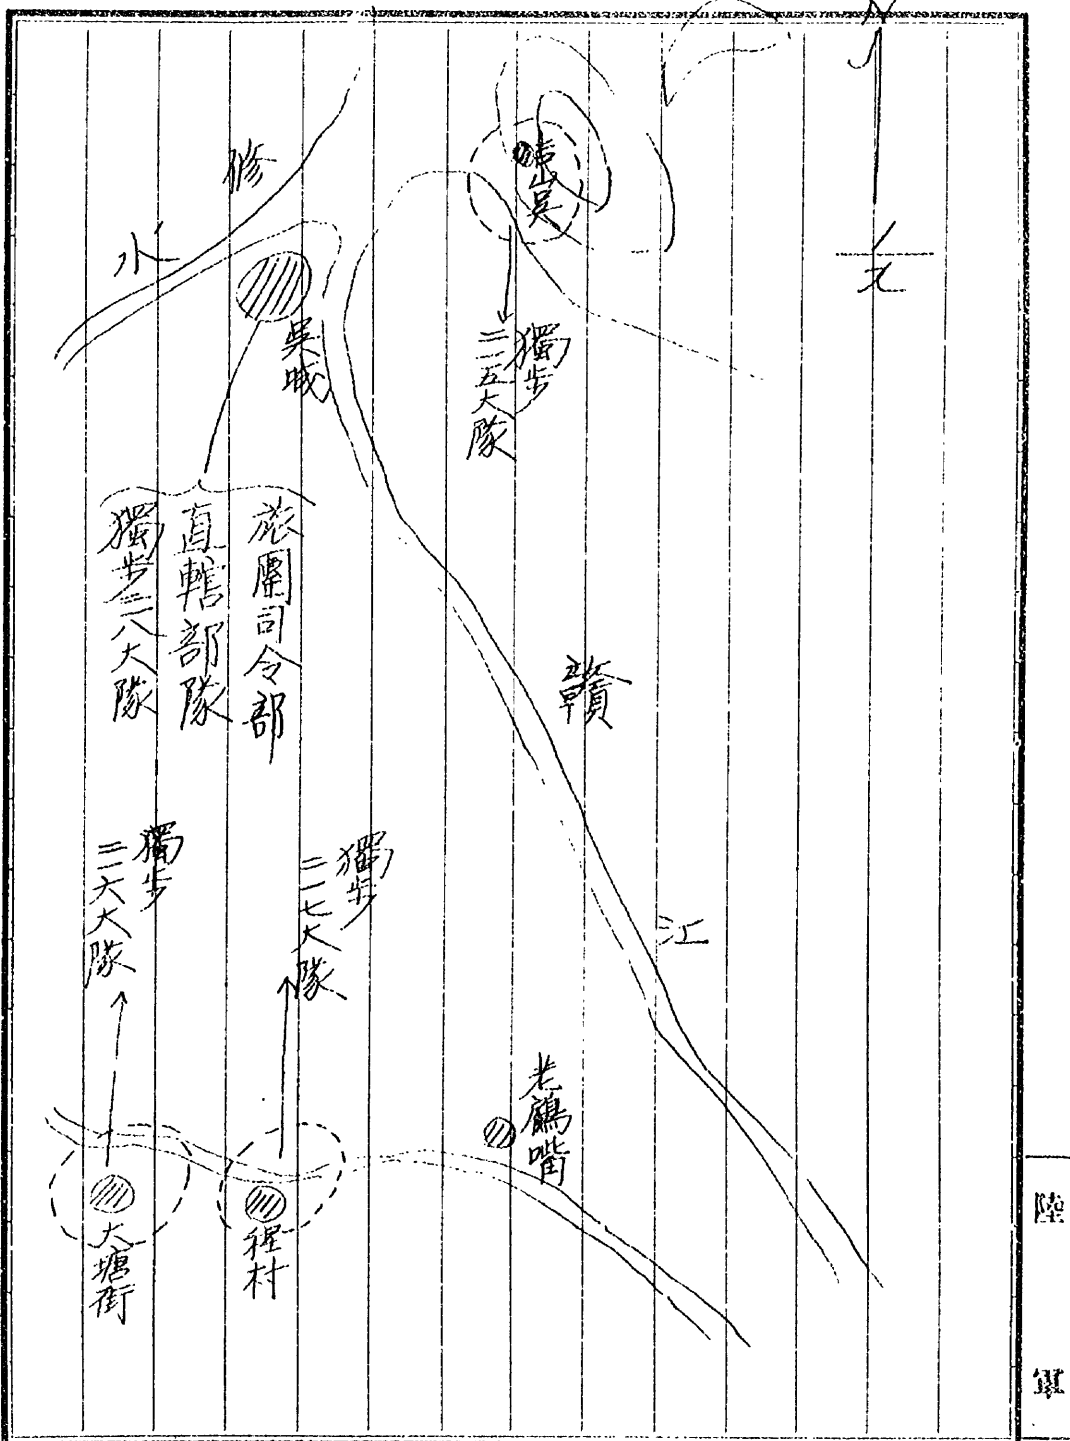 北
修
水
吳城
吉山
獨步
二一五大隊
旅團司令部
直轄部隊
獨步二一八大隊
贛
江
獨步
二一七大隊
獨步
二一六大隊
老鶴嘴
大塘街
村
陸軍